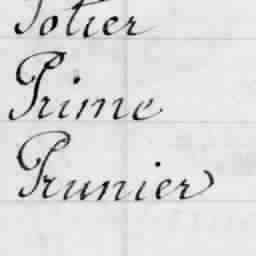 Potier
Prime
Prunier